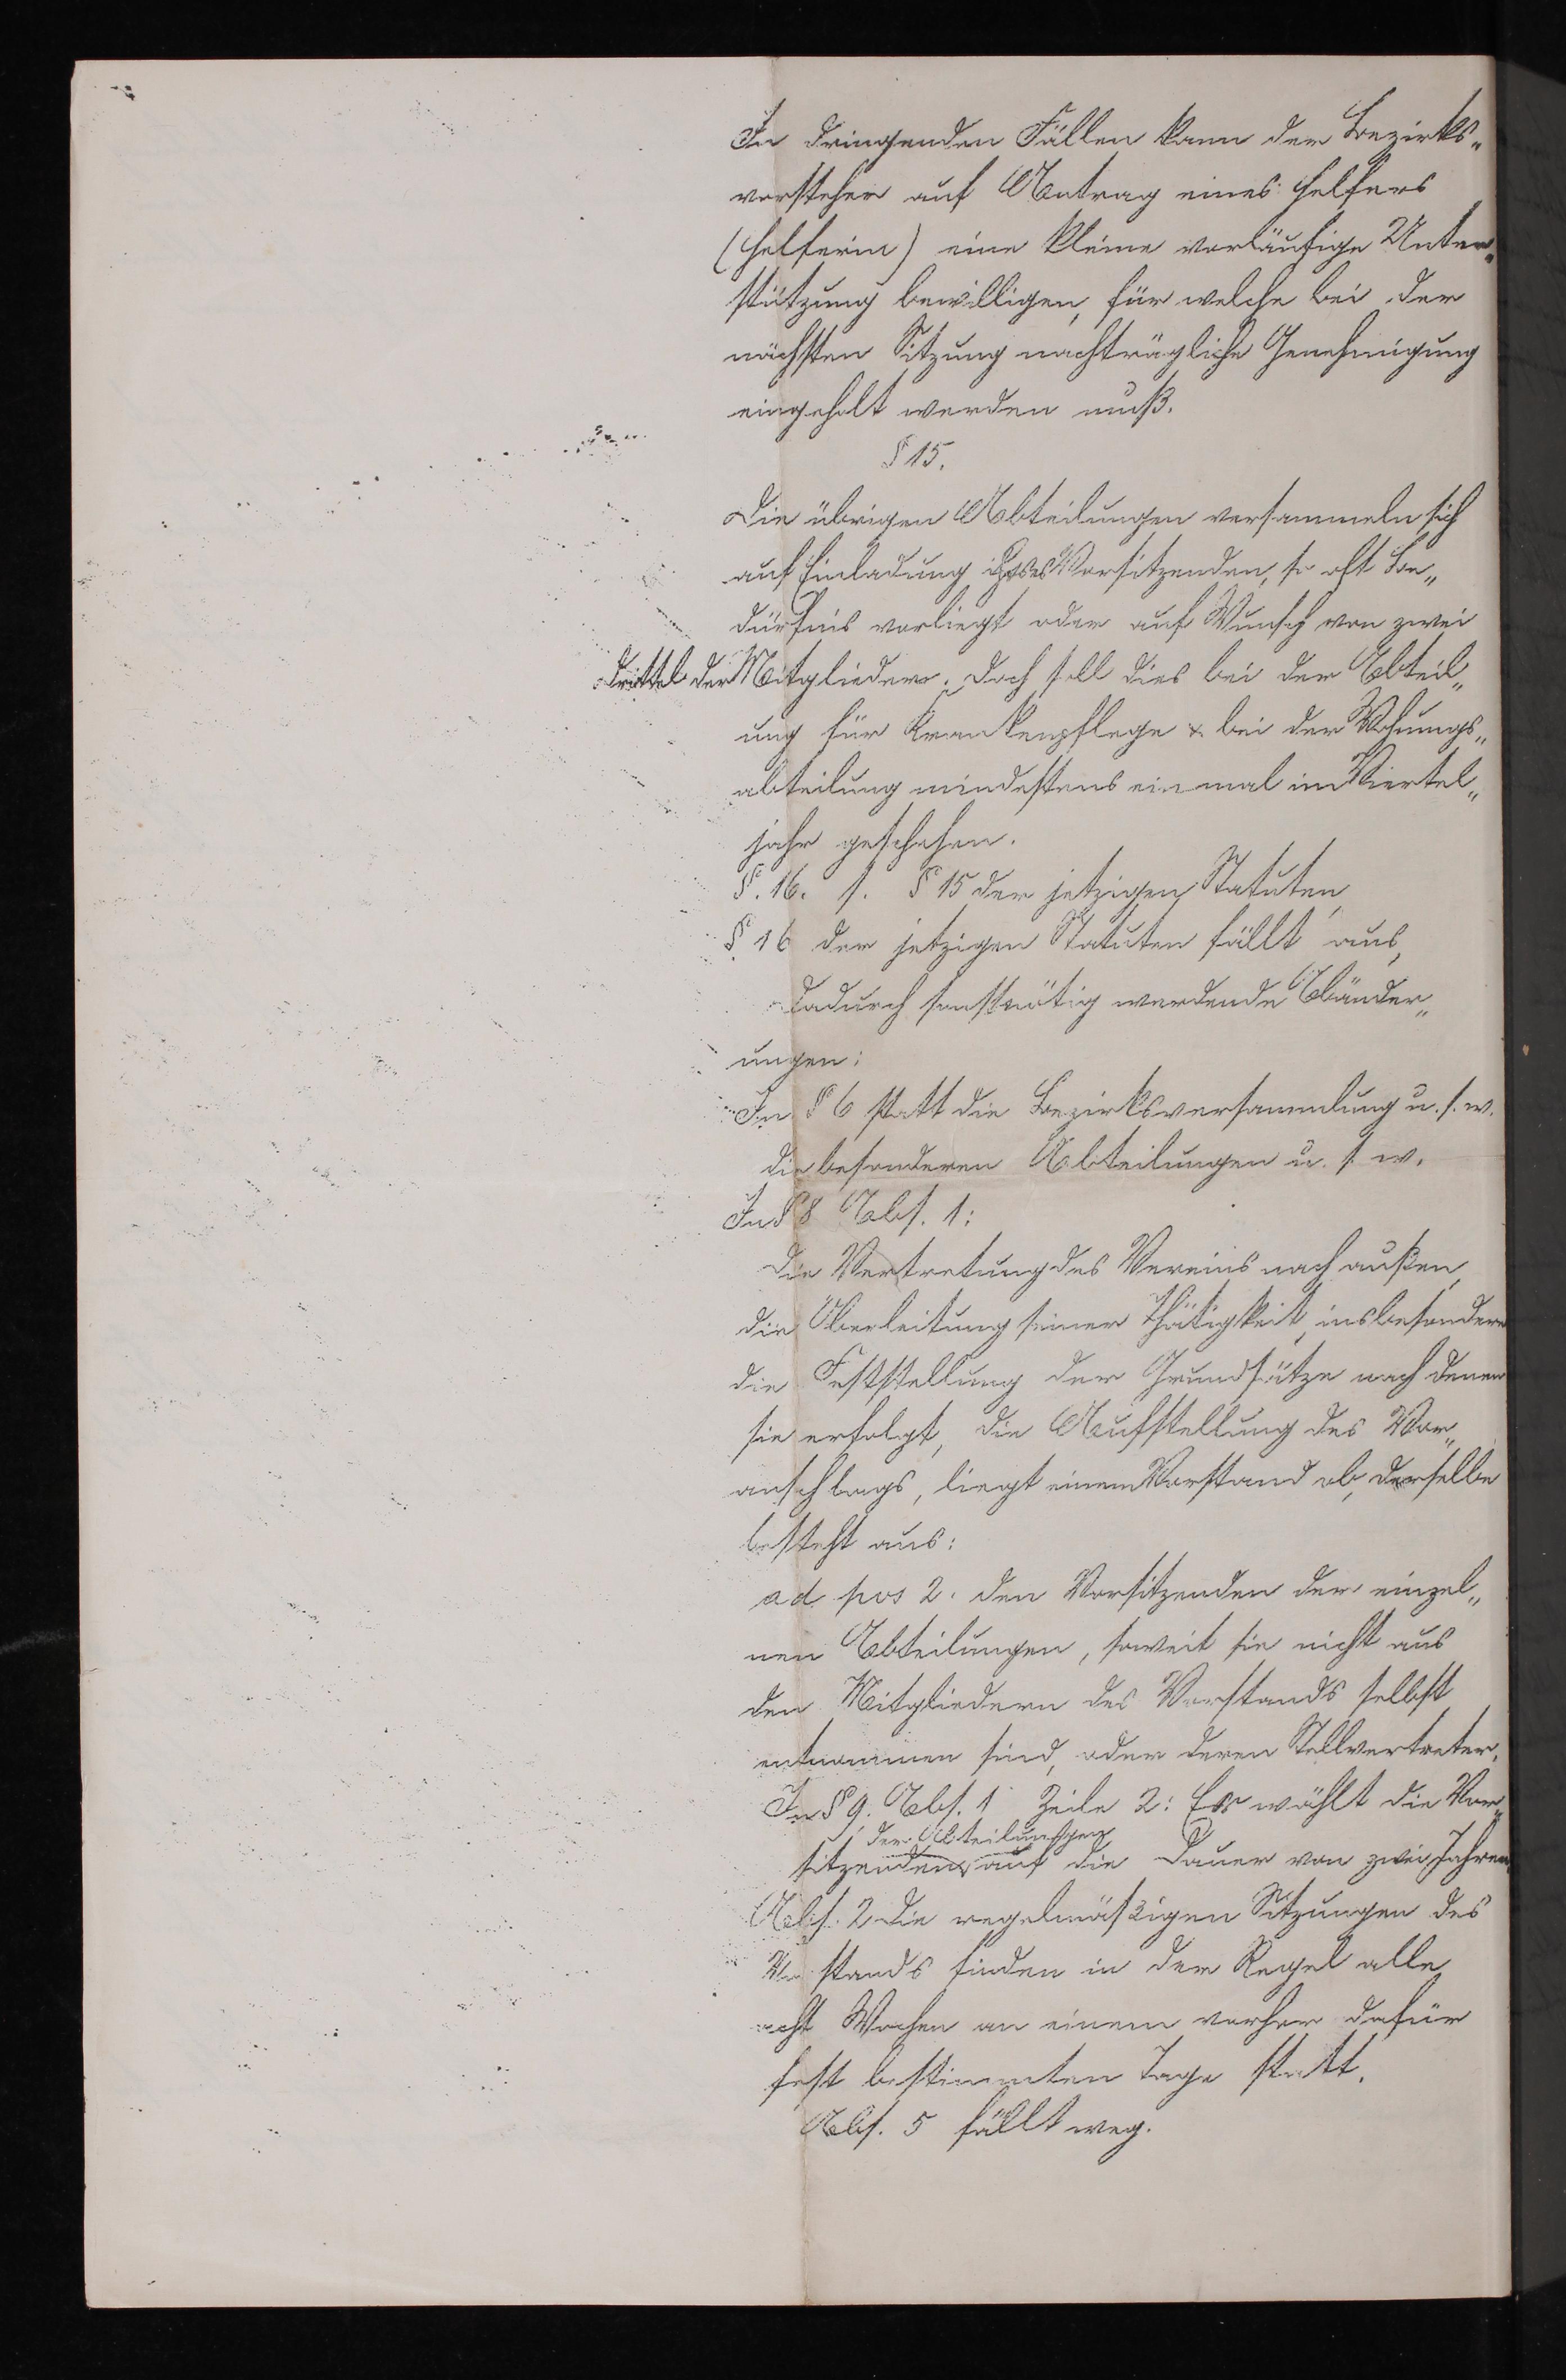 In dringenden Fällen kann der Bezirks„
vorsteher auf Antrag eines Helfers
(Helferin) eine kleine vorläufige Unter„
stützung bewilligen, für welche bei der
nächsten Sitzung nachträgliche Genehmigung
eingeholt werden muß.
§ 15.
Die übrigen Abteilungen versammeln sich
auf Einladung ihres Vorsitzenden, so oft Be„
dürfnis vorliegt oder auf Wunsch von zwei
drittel der Mitglieder. Doch soll dies bei der Abteil„
ung für Krankenpflege & bei der Wohnungs„
abteilung mindestens einmal im Viertel„
jahr geschehen.
§. 16. s. § 15 der jetzigen Statuten,
§ 16 der jetzigen Statuten fällt aus,
dadurch sonst nötig werdende Abänder„
ungen:
In § 6 statt die Bezirksversammlung u. s. w.
die besonderen Abteilungen u. s. w.
In § 8 Abs. 1:
Die Vertretung des Vereins nach außen,
die Oberleitung seiner Thätigkeit, insbesondere
die Feststellung der Grundsätze nach denen
sie erfolgt, die Aufstellung des Vor„
anschlags, liegt einem Vorstand ob, derselbe
besteht aus:
ad pos 2. den Vorsitzenden der einzel„
nen Abteilungen, soweit sie nicht aus
den Mitgliedern des Vorstands selbst
entnommen sind, oder deren Stellvertreter.
In § 9. Abs. 1 Zeile 2: Er wählt die Vor„
der Abteilungen
sitzenden auf die Dauer von zwei Jahren.
Abs. 2 Die regelmäßigen Sitzungen des
Vorstands finden in der Regel alle
acht Wochen an einem vorher dafür
fest bestimmten Tage statt.
Abs. 5 fällt weg.